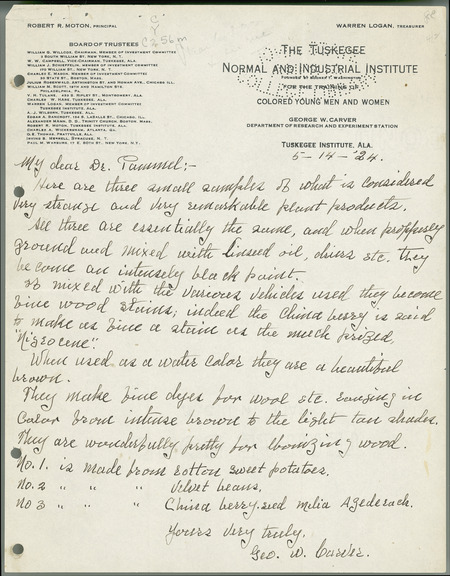 ROBERT R. MOTON, PRINCIPAL
WARREN LOGAN, TREASURER
BOARD OF TRUSTEES
WILLIAM G. WILLCOX, CHAIRMAN, MEMBER OF INVESTMENT COMMITTEE
3 SOUTH WILLIAM ST., NEW YORK, N. Y.
W. W. CAMPBELL, VICE-CHAIRMAN, TUSKEGEE, ALA.
WILLIAM J. SCHIEFFELIN, MEMBER OF INVESTMENT COMMITTEE
170 WILLIAM ST., NEW YORK, N. Y.
CHARLES E. MASON, MEMBER OF INVESTMENT COMMITTEE
30 STATE ST., BOSTON, MASS.
JULIUS ROSENWALD, ARTHINGTON ST. AND HOMAN AVE., CHICAGO, ILL.
WILLIAM M. SCOTT, 16TH AND HAMILTON STS.
PHILADELPHIA, PA.
V. H. TULANE, RIPLEY ST., MONTGOMERY, ALA.
CHARLES W. HARE, TUSKEGEE, ALA.
WARREN LOGAN, MEMBER OF INVESTMENT COMMITTEE
TUSKEGEE INSTITUTE, ALA.
A. J. WILBORN, TUSKEGEE, ALA.
EDGAR A. BANCROFT, LA SALLE ST., CHICAGO, ILL.
ALEXANDER MANN, D. D., TRINITY CHURCH, BOSTON, MASS.
ROBERT R. MOTON, TUSKEGEE INSTITUTE, ALA.
CHARLES A. WICKERSHAM, ATLANTA, GA.
PAUL M. WARBURG, 17 E. 80TH ST., NEW YORK, N. Y.
THE TUSKEGEE
NORMAL AND INDUSTRIAL INSTITUTE
FOR THE TRAINING OF
COLORED YOUNG MEN AND WOMEN
GEORGE W. CARVER
DEPARTMENT OF RESEARCH AND EXPERIMENT STATION
TUSKEGEE INSTITUTE, ALA.
5-14-'24.
My dear Dr. Pammel:-
Here are three small samples of what is considered
very strange and very remarkable plant products.
All three are essentially the same, and when properly
ground and mixed with linseed oil, driers etc. they
become an intensely black paint.
If mixed with the various vehicles used they become
fine wood stains; indeed the China berry is said
to make as fine a stain as the much prized,
"Nigrocene".
When used as a water color they are a beautiful
brown.
They make fine dyes for wool etc. ranging in
color from intense brown to the light tan shades.
They are wonderfully pretty for ebonizing wood.
No. 1. is made from rotton sweet potatoes.
No. 2 " " " Velvet beans.
No 3 " " " China berry seed melia Azederach.
Yours very truly,
Geo. W. Carver.